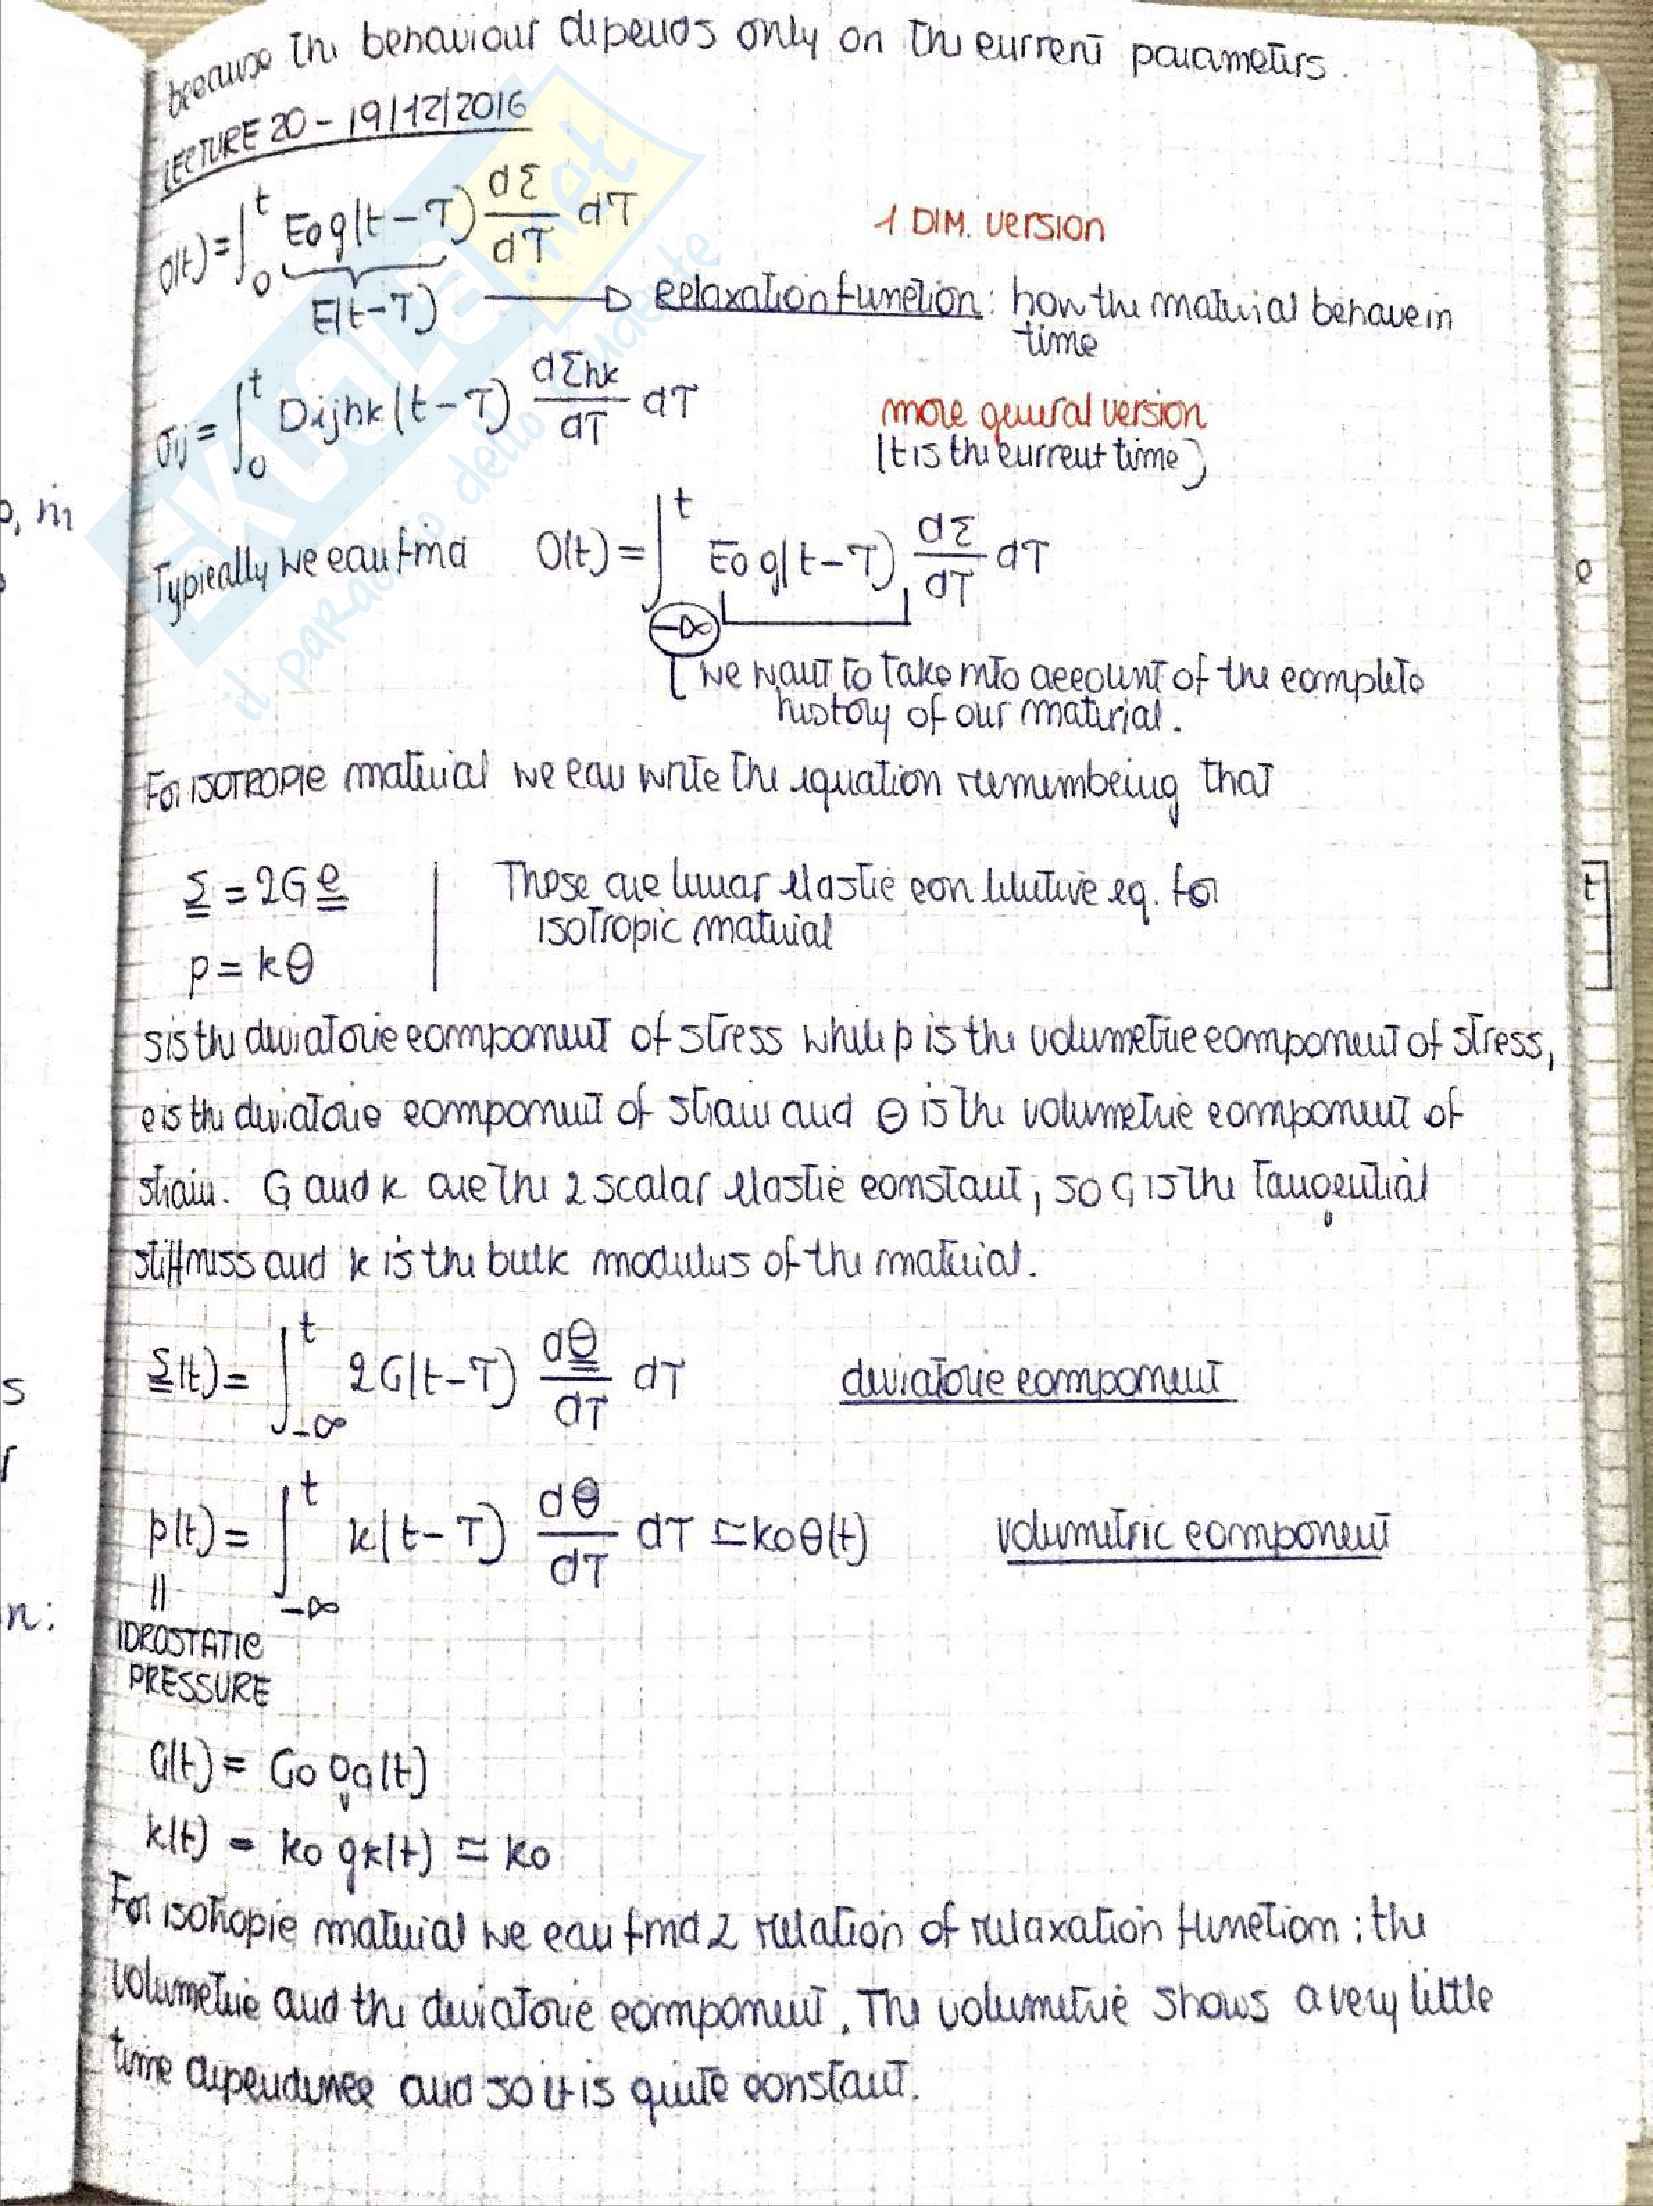 because the behaviour depends only on the current parameters.
LECTURE 20 - 19/12/2016
σ(t) = ∫₀ᵗ E₀ g(t-τ) dε/dτ dτ 1 DIM. version
E(t-τ) → Relaxation function: how the material behave in time
σij = ∫₀ᵗ Dijhk(t-τ) dεhk/dτ dτ more general version
(t is the current time)
Typically we can find σ(t) = ∫₋∞ᵗ E₀ g(t-τ) dε/dτ dτ
we want to take into account of the complete
history of our material.
For ISOTROPIC material we can write the equation remembeing that
s = 2G e These are linear elastic constitutive eq. for
isotropic material
p = kθ
s is the deviatoric component of stress while p is the volumetric component of stress,
e is the deviatoric component of strain and θ is the volumetric component of
strain. G and k are the 2 scalar elastic constant, so G is the tangential
stiffness and k is the bulk modulus of the material.
s(t) = ∫₋∞ᵗ 2G(t-τ) dθ/dτ dτ deviatoric component
p(t) = ∫₋∞ᵗ k(t-τ) dθ/dτ dτ ≃ k₀θ(t) volumetric component
||
IDROSTATIC
PRESSURE
G(t) = G₀ gG(t)
k(t) = k₀ gk(t) ≃ k₀
For isotropic material we can find 2 relation of relaxation function: the
volumetric and the deviatoric component. The volumetric shows a very little
time dependence and so it is quite constant.
SKUOLA.net
il paradiso dello studente